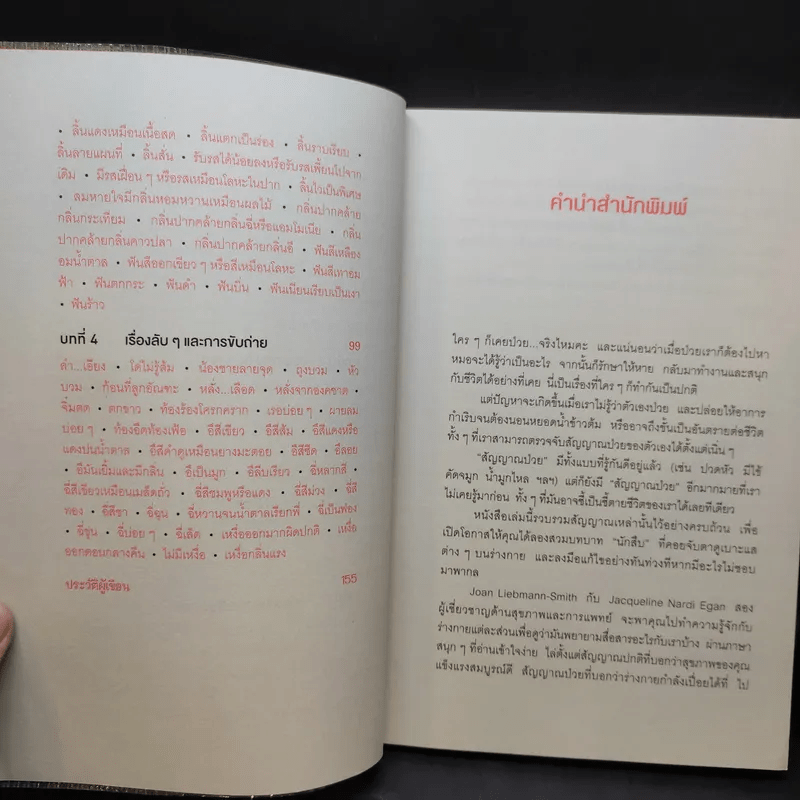 • ลิ้นแดงเหมือนเนื้อสด • ลิ้นแตกเป็นร่อง • ลิ้นราบเรียบ •
ลิ้นลายแผนที่ • ลิ้นสั่น • รับรสได้น้อยลงหรือรับรสเพี้ยนไปจาก
เดิม • มีรสเฝื่อน ๆ หรือรสเหมือนโลหะในปาก • ลิ้นไวเป็นพิเศษ
• ลมหายใจมีกลิ่นหอมหวานเหมือนผลไม้ • กลิ่นปากคล้าย
กลิ่นกระเทียม • กลิ่นปากคล้ายกลิ่นฉี่หรือแอมโมเนีย • กลิ่น
ปากคล้ายกลิ่นคาวปลา • กลิ่นปากคล้ายกลิ่นอึ • ฟันสีเหลือง
อมน้ำตาล • ฟันสีออกเขียว ๆ หรือสีเหมือนโลหะ • ฟันสีเทาอม
ฟ้า • ฟันตกกระ • ฟันดำ • ฟันบิ่น • ฟันเนียนเรียบเป็นเงา
• ฟันร้าว
บทที่ 4 เรื่องลับ ๆ และการขับถ่าย 99
ลำ...เอียง • โตไม่รู้ล้ม • น้องชายลายจุด • ถุงบวม • หัว
บวม • ก้อนที่ลูกอัณฑะ • หลั่ง...เลือด • หลั่งจากองคชาต •
จิ๋มตด • ตกขาว • ท้องร้องโครกคราก • เรอบ่อย ๆ • ผายลม
บ่อย ๆ • ท้องอืดท้องเฟ้อ • อึสีเขียว • อึสีส้ม • อึสีแดงหรือ
แดงปนน้ำตาล • อึสีดำดูเหมือนยางมะตอย • อึสีซีด • อึลอย
• อึมันเยิ้มและมีกลิ่น • อึเป็นมูก • อึลีบเรียว • อึหลากสี •
ฉี่สีเขียวเหมือนเมล็ดถั่ว • ฉี่สีชมพูหรือแดง • ฉี่สีม่วง • ฉี่สี
ทอง • ฉี่สีชา • ฉี่ฉุน • ฉี่หวานจนน้ำตาลเรียกพี่ • ฉี่เป็นฟอง
• ฉี่ขุ่น • ฉี่บ่อย ๆ • ฉี่เล็ด • เหงื่อออกมากผิดปกติ • เหงื่อ
ออกตอนกลางคืน • ไม่มีเหงื่อ • เหงื่อกลิ่นแรง
ประวัติผู้เขียน 155
คำนำสำนักพิมพ์
ใคร ๆ ก็เคยป่วย...จริงไหมคะ และแน่นอนว่าเมื่อป่วยเราก็ต้องไปหา
หมอจะได้รู้ว่าเป็นอะไร จากนั้นก็รักษาให้หาย กลับมาทำงานและสนุก
กับชีวิตได้อย่างที่เคย นี่เป็นเรื่องที่ใคร ๆ ก็ทำกันเป็นปกติ
แต่ปัญหาจะเกิดขึ้นเมื่อเราไม่รู้ว่าตัวเองป่วย และปล่อยให้อาการ
กำเริบจนต้องนอนหยอดน้ำข้าวต้ม หรืออาจถึงขั้นเป็นอันตรายต่อชีวิต
ทั้ง ๆ ที่เราสามารถตรวจจับสัญญาณป่วยของตัวเองได้ตั้งแต่เนิ่น ๆ
"สัญญาณป่วย" มีทั้งแบบที่รู้กันดีอยู่แล้ว (เช่น ปวดหัว มีไข้
คัดจมูก น้ำมูกไหล ฯลฯ) แต่ก็ยังมี "สัญญาณป่วย" อีกมากมายที่เรา
ไม่เคยรู้มาก่อน ทั้ง ๆ ที่มันอาจชี้เป็นชี้ตายชีวิตของเราได้เลยทีเดียว
หนังสือเล่มนี้รวบรวมสัญญาณเหล่านั้นไว้อย่างครบถ้วน เพื่อ
เปิดโอกาสให้คุณได้ลองสวมบทบาท "นักสืบ" ที่คอยจับตาดูเบาะแส
ต่าง ๆ บนร่างกาย และลงมือแก้ไขอย่างทันท่วงทีหากมีอะไรไม่ชอบ
มาพากล
Joan Liebmann-Smith กับ Jacqueline Nardi Egan สอง
ผู้เชี่ยวชาญด้านสุขภาพและการแพทย์ จะพาคุณไปทำความรู้จักกับ
ร่างกายแต่ละส่วนเพื่อดูว่ามันพยายามสื่อสารอะไรกับเราบ้าง ผ่านภาษา
สนุก ๆ ที่อ่านเข้าใจง่าย ไล่ตั้งแต่สัญญาณปกติที่บอกว่าสุขภาพของคุณ
แข็งแรงสมบูรณ์ดี สัญญาณป่วยที่บอกว่าร่างกายกำลังเปื่อยได้ที่ ไป